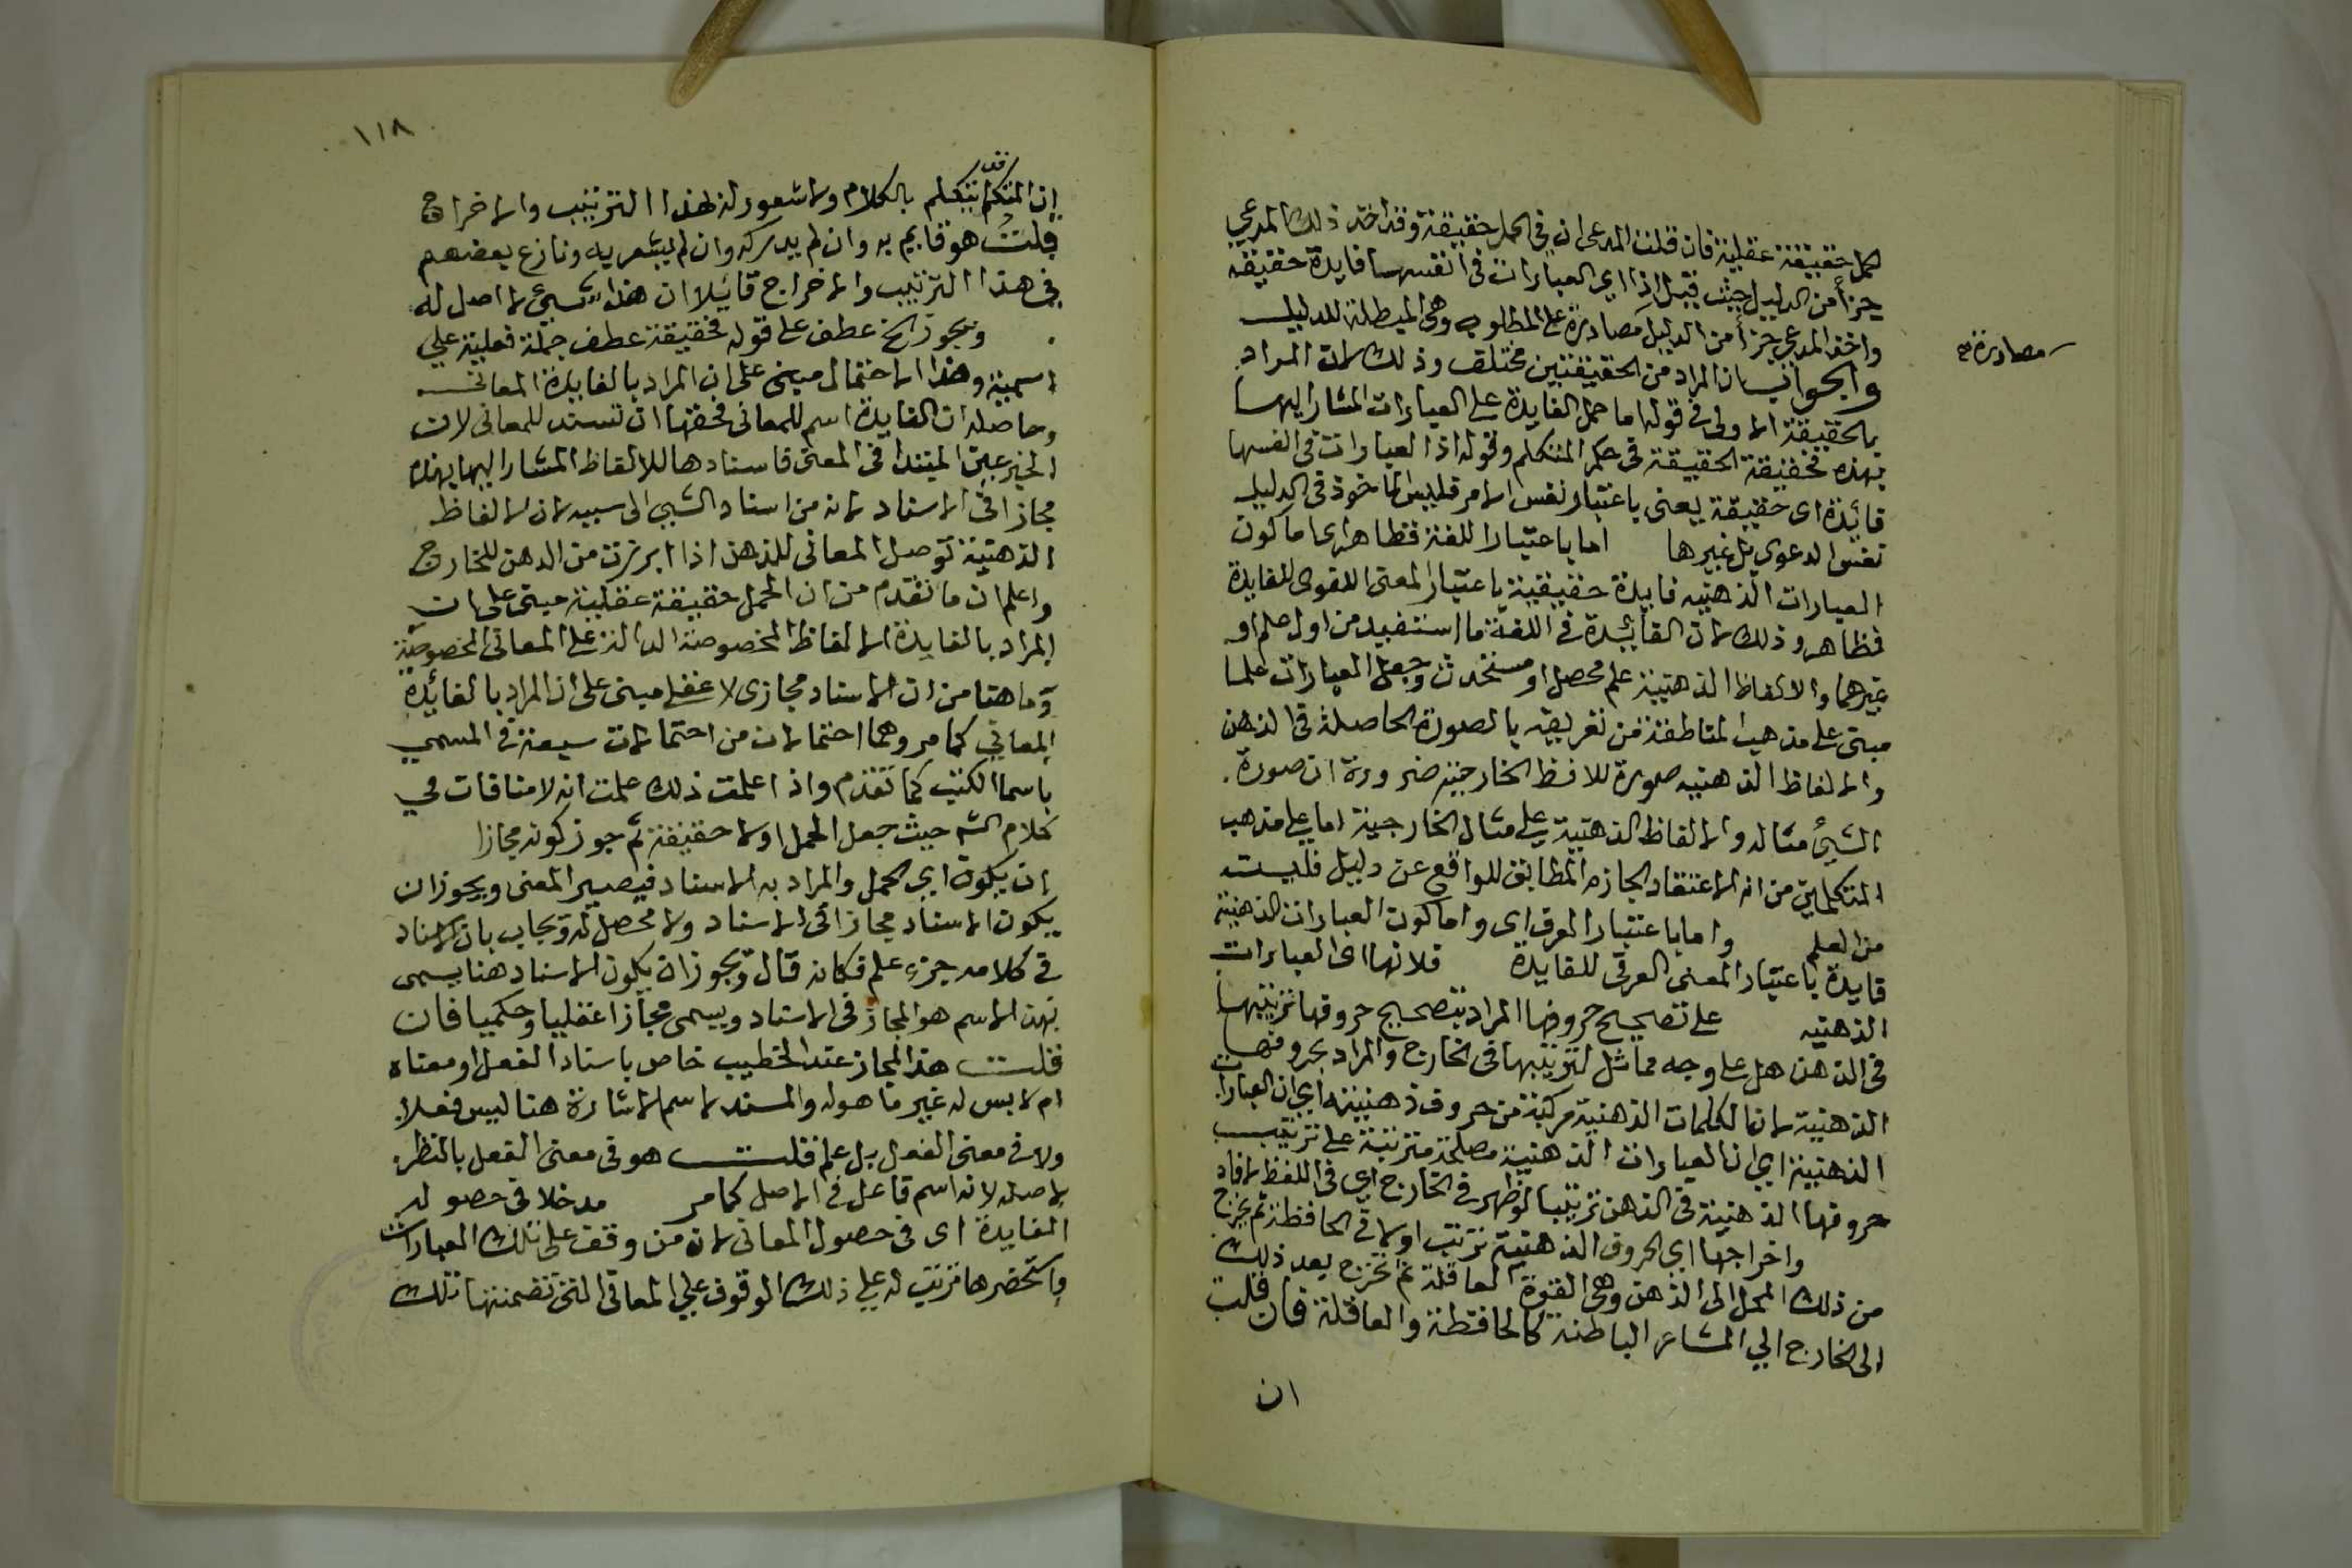 كحل حقيقة عقلية فان قلت المدعى ان في الحمل حقيقة وقد اخذ ذلك المدعي
جزأ من الدليل حيث قيل اذا اي العبارات في انفسها فايدة حقيقة
واخذ المدعي جزأ من الدليل مصادرة على المطلوب وهي المبطلة للدليل
مصادرة صح
والجواب ان المراد من الحقيقتين مختلف وذلك لان المراد
بالحقيقة الاولى في قوله اما حمل الفايدة على العبارات المشار اليها
بهذه فحقيقة الحقيقة في حكم المتكلم وقوله اذ العبارات في انفسها
فائدة اى حقيقة يعنى باعتبار نفس الامر فليس الماخوذ في الدليل
نفس الدعوى بل غيرها اما باعتبار اللغة فظاهر اى اما كون
العبارات الذهنيه فايدة حقيقية باعتبار المعنى اللغوى للفايدة
فظاهر وذلك لان الفائيدة في اللغة ما استفيد من اول علم او
غيرهما والالفاظ الذهنية علم محصل او مستحدث وجعل العبارات علما
مبنى على مذهب المناطقة من تعريفه بالصورة الحاصلة في الذهن
والالفاظ الذهنيه صورة للافظ الخارجيه ضرورة ان صورة
الشيئ مثاله والالفاظ الذهنية على مثال الخارجية اما على مذهب
المتكلمين من انه الاعتقاد الجازم المطابق للواقع عن دليل فليست
من العلم واما باعتبار العرف اى واما كون العبارات الذهنية
فايدة باعتبار المعنى العرفى للفايدة فلانها اى العبارات
الذهنيه على تصحيح حروفها المراد بتصحيح حروفها ترتيبها
في الذهن هل على وجه مماثل لترتيبها في الخارج والمراد بحروفها
الذهنية لان الكلمات الذهنية مركبة من حروف ذهنية اي ان العبارات
الذهنية اي ان العبارات الذهنية مصلحة مترتبة على ترتيب
حروفها الذهنية في الذهن ترتيبا لو ظهر في الخارج اي في اللفظ لافاد
واخراجها اي الحروف الذهنية ترتب اولا في الحافظة ثم يخرج
من ذلك المحل الى الذهن وهي القوة العاقلة ثم تخرج بعد ذلك
الى الخارج الي المشاعر الباطنة كالحافظة والعاقلة فان قلت
ان
١١٨
ان المتكلم قد يتكلم بالكلام ولا شعور له بهذا الترتيب والاخراج
قلت هو قايم به وان لم يدركه وان لم يشعر به ونازع بعضهم
في هذا الترتيب والاخراج قائلا ان هذا شيئ لا اصل له
ويجوز الخ عطف على قوله فحقيقة عطف جملة فعلية علي
اسمية وهذا الاحتمال مبنى على ان المراد بالفايدة المعانى
وحاصله ان الفايدة اسم للمعانى فحقها ان تسند للمعانى لان
الخبر عين المبتدا في المعنى فاسنادها للالفاظ المشار اليها بهذه
مجازا في الاسناد لانه من اسناد الشيي الى سببه لان الالفاظ
الذهنية توصل المعانى للذهن اذا ابرزت من الدهن للخارج
واعلم ان ما تقدم من ان الحمل حقيقة عقلية مبنى على ان
المراد بالفايدة الالفاظ المخصوصة الدالة على المعانى المخصوصة
وما هنا من ان الاسناد مجازى لا عقلي مبنى على ان المراد بالفائدة
المعاني كما مر وهما احتمالان من احتمالات سبعة في المسمي
باسما الكتب كما تقدم واذا علمت ذلك علمت انه لا منافات في
كلام الشم حيث جعل الحمل اولا حقيقة ثم جوز كونه مجازا
ان يكون اي الحمل والمراد به الاسناد فيصير المعنى ويجوز ان
يكون الاسناد مجازا في الاسناد ولا محصل له ويجاب بان الاسناد
في كلامه جزء علم فكانه قال ويجوز ان يكون الاسناد هنا يسمى
بهذا الاسم هو المجاز في الاسناد ويسمى مجازا عقليا وحكميا فان
قلت هذا المجاز عند الخطيب خاص باسناد الفعل او معناه
ام لابس له غير ما هو له والمسند لاسم الاشارة هنا ليس فعلا
ولا في معنى الفعل بل علم قلت هو في معنى الفعل بالنظر
لاصله لانه اسم فاعل في الاصل كما مر مدخلا في حصول
الفايدة اى في حصول المعانى لان من وقف على تلك العبارات
واستحضرها ترتب له على ذلك الوقوف علي المعانى التى تضمنتها تلك